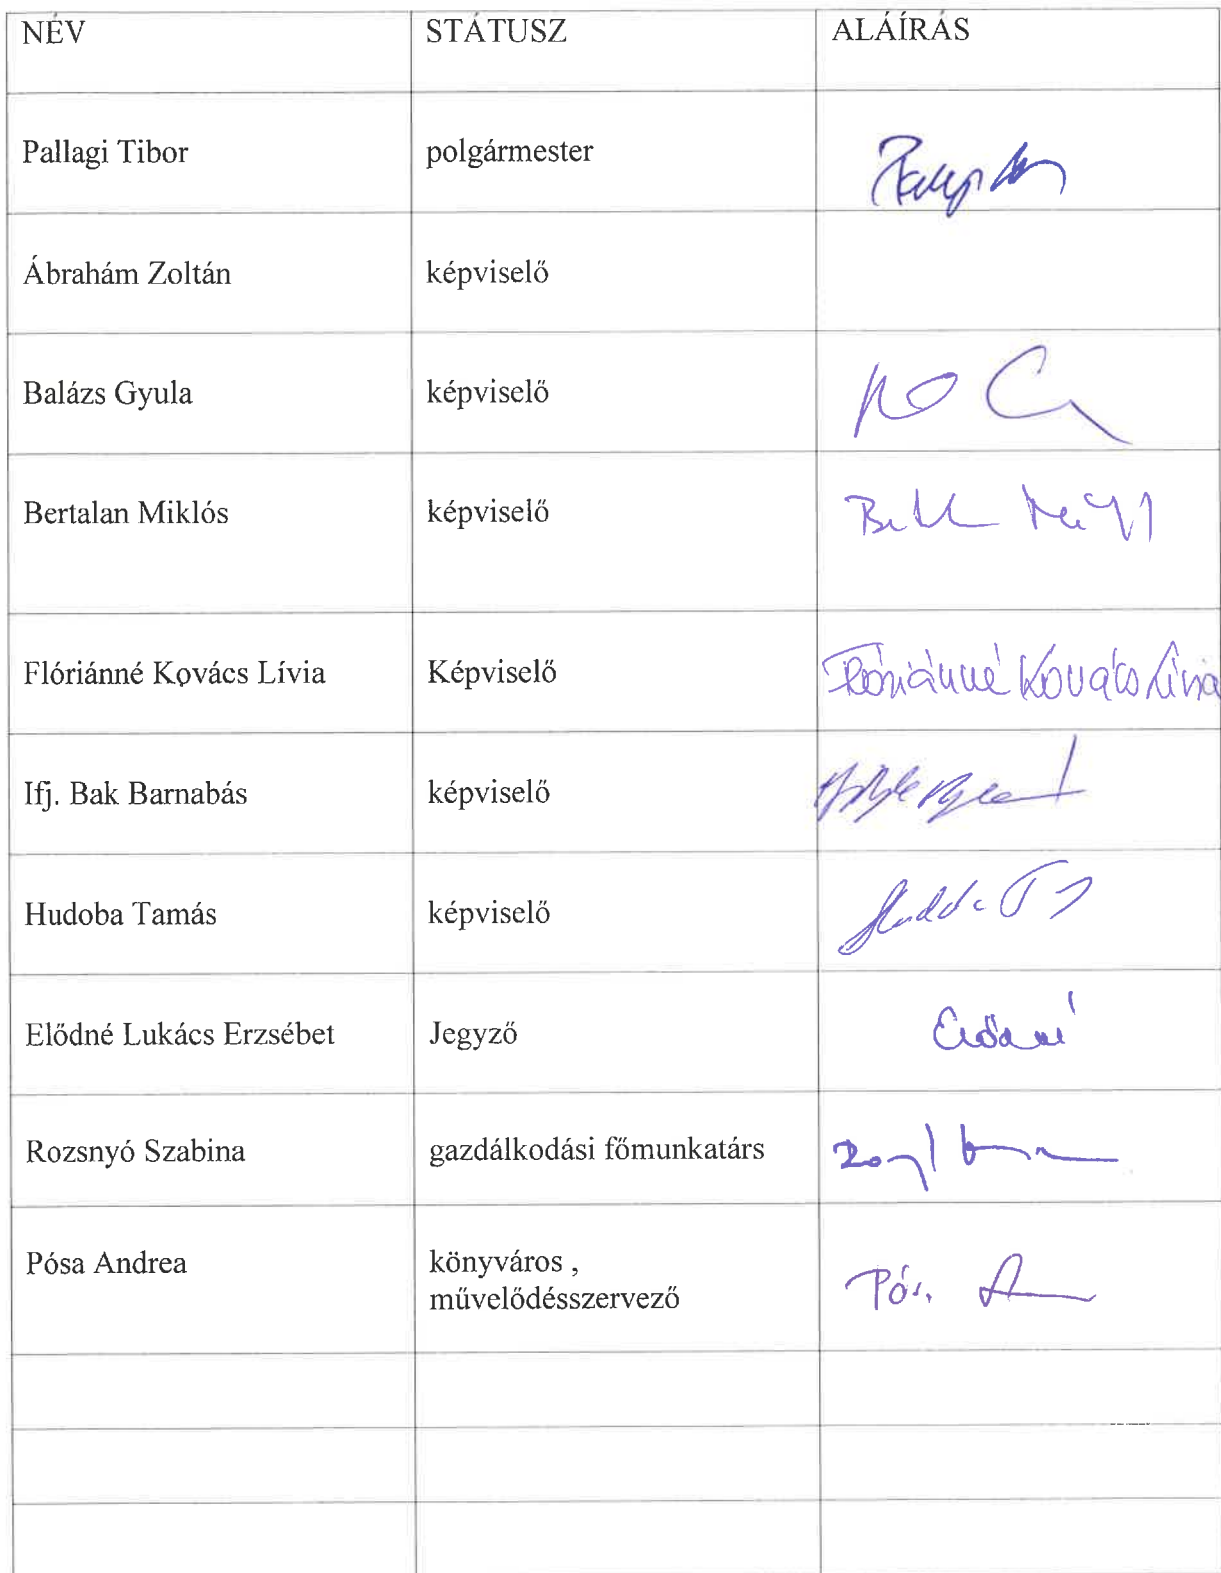 NÉV STÁTUSZ ALÁÍRÁS
Pallagi Tibor polgármester
Ábrahám Zoltán képviselő
Balázs Gyula képviselő
Bertalan Miklós képviselő
Flóriánné Kovács Lívia Képviselő Flóriánné Kovács Lívia
Ifj. Bak Barnabás képviselő
Hudoba Tamás képviselő
Elődné Lukács Erzsébet Jegyző Elődné
Rozsnyó Szabina gazdálkodási főmunkatárs
Pósa Andrea könyváros ,
művelődésszervező